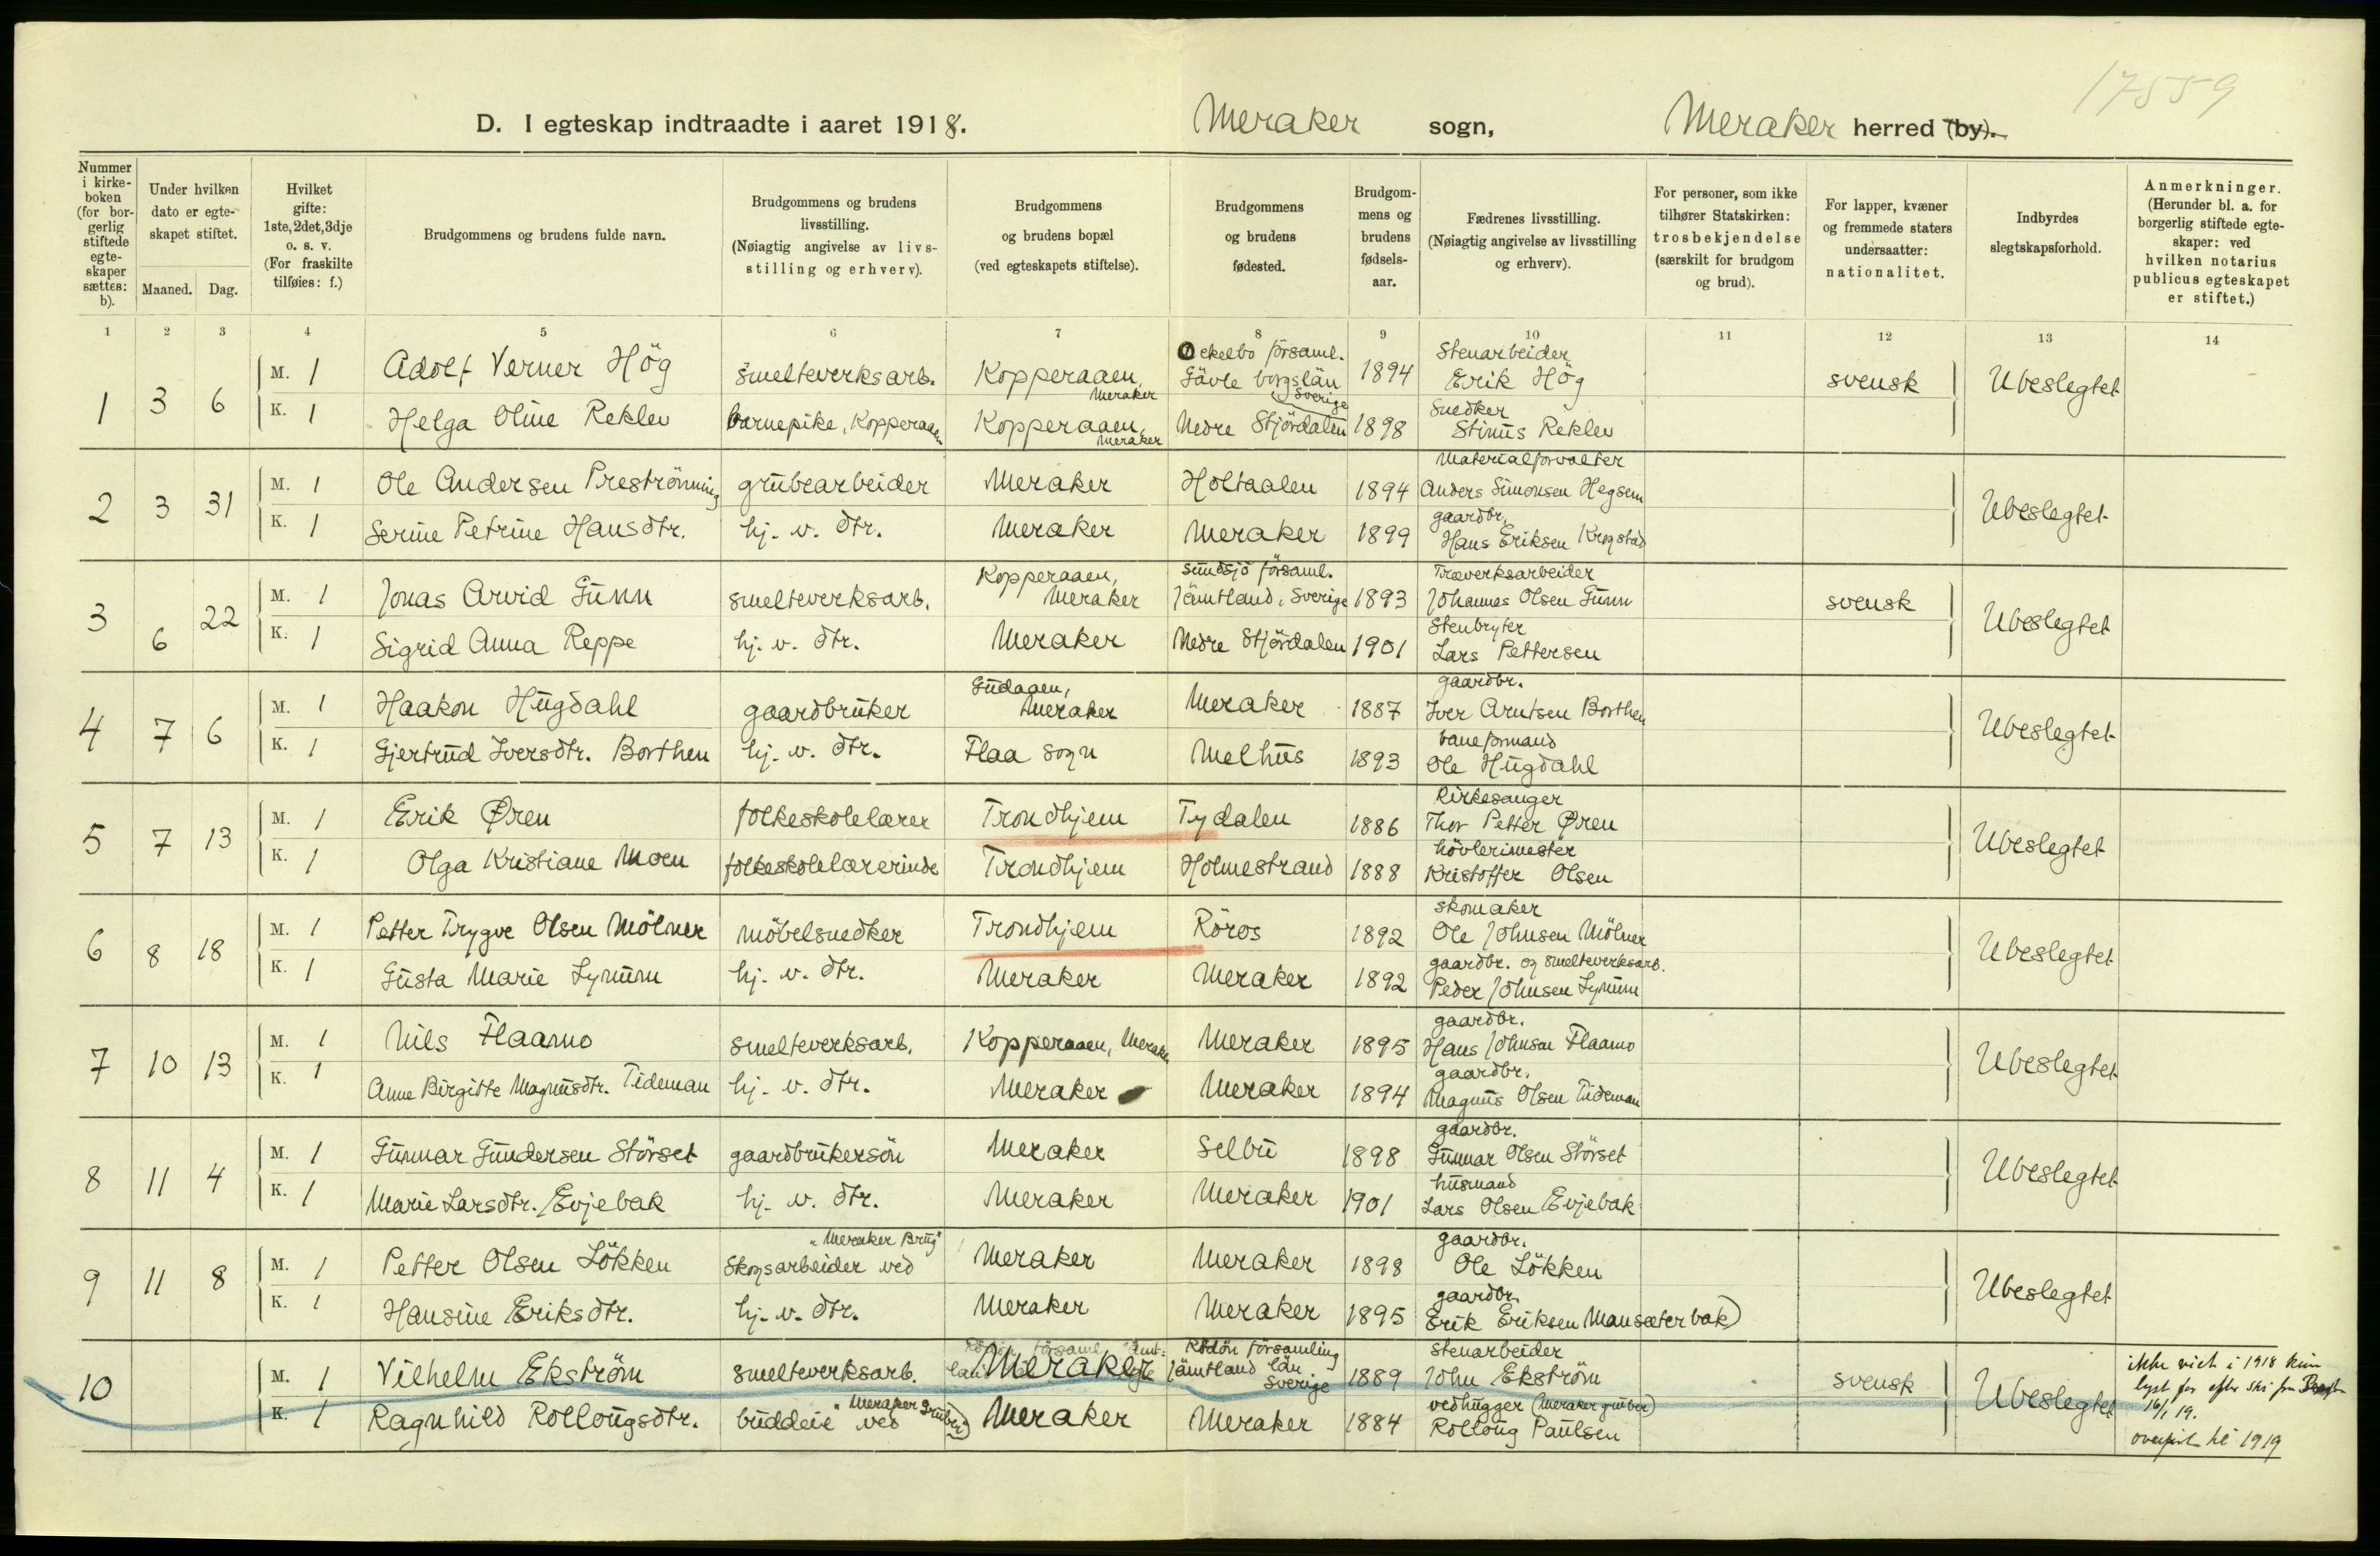 17559
D. I egteskap indtraadte i aaret 1918. Meraker sogn, Meraker herred (by).
Nummer i kirkeboken (for borgerlig stiftede egteskaper sættes: b).
Under hvilken dato er egteskapet stiftet.
Maaned. Dag.
Hvilket gifte: 1ste, 2det, 3dje o. s. v. (For fraskilte tilføies: f.)
Brudgommens og brudens fulde navn.
Brudgommens og brudens livsstilling. (Nøiagtig angivelse av livsstilling og erhverv).
Brudgommens og brudens bopæl (ved egteskapets stiftelse).
Brudgommens og brudens fødested.
Brudgommens og brudens fødselsaar.
Fædrenes livsstilling. (Nøiagtig angivelse av livsstilling og erhverv).
For personer, som ikke tilhører Statskirken: trosbekjendelse (særskilt for brudgom og brud).
For lapper, kvæner og fremmede staters undersaatter: nationalitet.
Indbyrdes slegtskapsforhold.
Anmerkninger. (Herunder bl. a. for borgerlig stiftede egteskaper: ved hvilken notarius publicus egteskapet er stiftet.)
1 2 3 4 5 6 7 8 9 10 11 12 13 14
1 3 6 M. 1 Adolf Verner Hög smelteverksarb. Kopperaaen, Meraker Ockelbo församl. Gävle borgslän Sverige 1894 Stenarbeider Erik Hög svensk Ubeslegtet
K. 1 Helga Oline Reklev barnepike, Kopperaaen Kopperaaen, Meraker Nedre Stjördalen 1898 Snedker Stinus Reklev
2 3 31 M. 1 Ole Andersen Preströnning grubearbeider Meraker Holtaalen 1894 Materialforvalter Anders Simonsen Hegsem Ubeslegtet
K. 1 Serine Petrine Hansdtr. hj. v. dtr. Meraker Meraker 1899 gaardbr. Hans Eriksen Krogstad
3 6 22 M. 1 Jonas Arvid Gunn smelteverksarb. Kopperaaen, Meraker Sundsjö församl. Jämtland, Sverige 1893 Træverksarbeider Johannes Olsen Gunn svensk Ubeslegtet
K. 1 Sigrid Anna Reppe hj. v. dtr. Meraker Nedre Stjördalen 1901 Stenbryter Lars Pettersen
4 7 6 M. 1 Haakon Hugdahl gaardbruker Gudaaen, Meraker Meraker 1887 gaardbr. Iver Arntsen Borthen Ubeslegtet
K. 1 Gjertrud Iversdtr. Borthen hj. v. dtr. Flaa sogn Melhus 1893 baneformand Ole Hugdahl
5 7 13 M. 1 Erik Øren folkeskolelærer Trondhjem Tydalen 1886 Kirkesanger Thor Petter Øren Ubeslegtet
K. 1 Olga Kristiane Moen folkeskolelærerinde Trondhjem Holmestrand 1888 hövlerimester Kristoffer Olsen
6 8 18 M. 1 Petter Trygve Olsen Mölner möbelsnedker Trondhjem Röros 1892 skomaker Ole Johnsen Mölner Ubeslegtet
K. 1 Gusta Marie Lynum hj. v. dtr. Meraker Meraker 1892 gaardbr. og smelteverksarb. Peder Johnsen Lynum
7 10 13 M. 1 Nils Flaamo smelteverksarb. Kopperaaen, Meraker Meraker 1895 gaardbr. Hans Johnsen Flaamo Ubeslegtet
K. 1 Anne Birgitte Magnusdtr. Tideman hj. v. dtr. Meraker Meraker 1894 gaardbr. Magnus Olsen Tideman
8 11 4 M. 1 Gunnar Gundersen Störset gaardbrukersön Meraker Selbu 1898 gaardbr. Gunnar Olsen Störset Ubeslegtet
K. 1 Marie Larsdtr. Evjebak hj. v. dtr. Meraker Meraker 1901 husmand Lars Olsen Evjebak
9 11 8 M. 1 Petter Olsen Lökken Skogsarbeider ved "Meraker Brug" Meraker Meraker 1898 gaardbr. Ole Lökken Ubeslegtet
K. 1 Hansine Eriksdtr. hj. v. dtr. Meraker Meraker 1895 gaardbr. Erik Eriksen Mansæterbak)
10 M. 1 Vilhelm Ekström smelteverksarb. Meraker Rödön församling Jämtland län Sverige 1889 stenarbeider John Ekström svensk Ubeslegtet ikke viet i 1918 kun
K. 1 Ragnhild Rollougsdtr. buddeie ved "Meraker Gruber" Meraker Meraker 1884 vedhugger (Meraker gruber) Rolloug Paulsen
lyst for efter
16/1 19.
til 1919